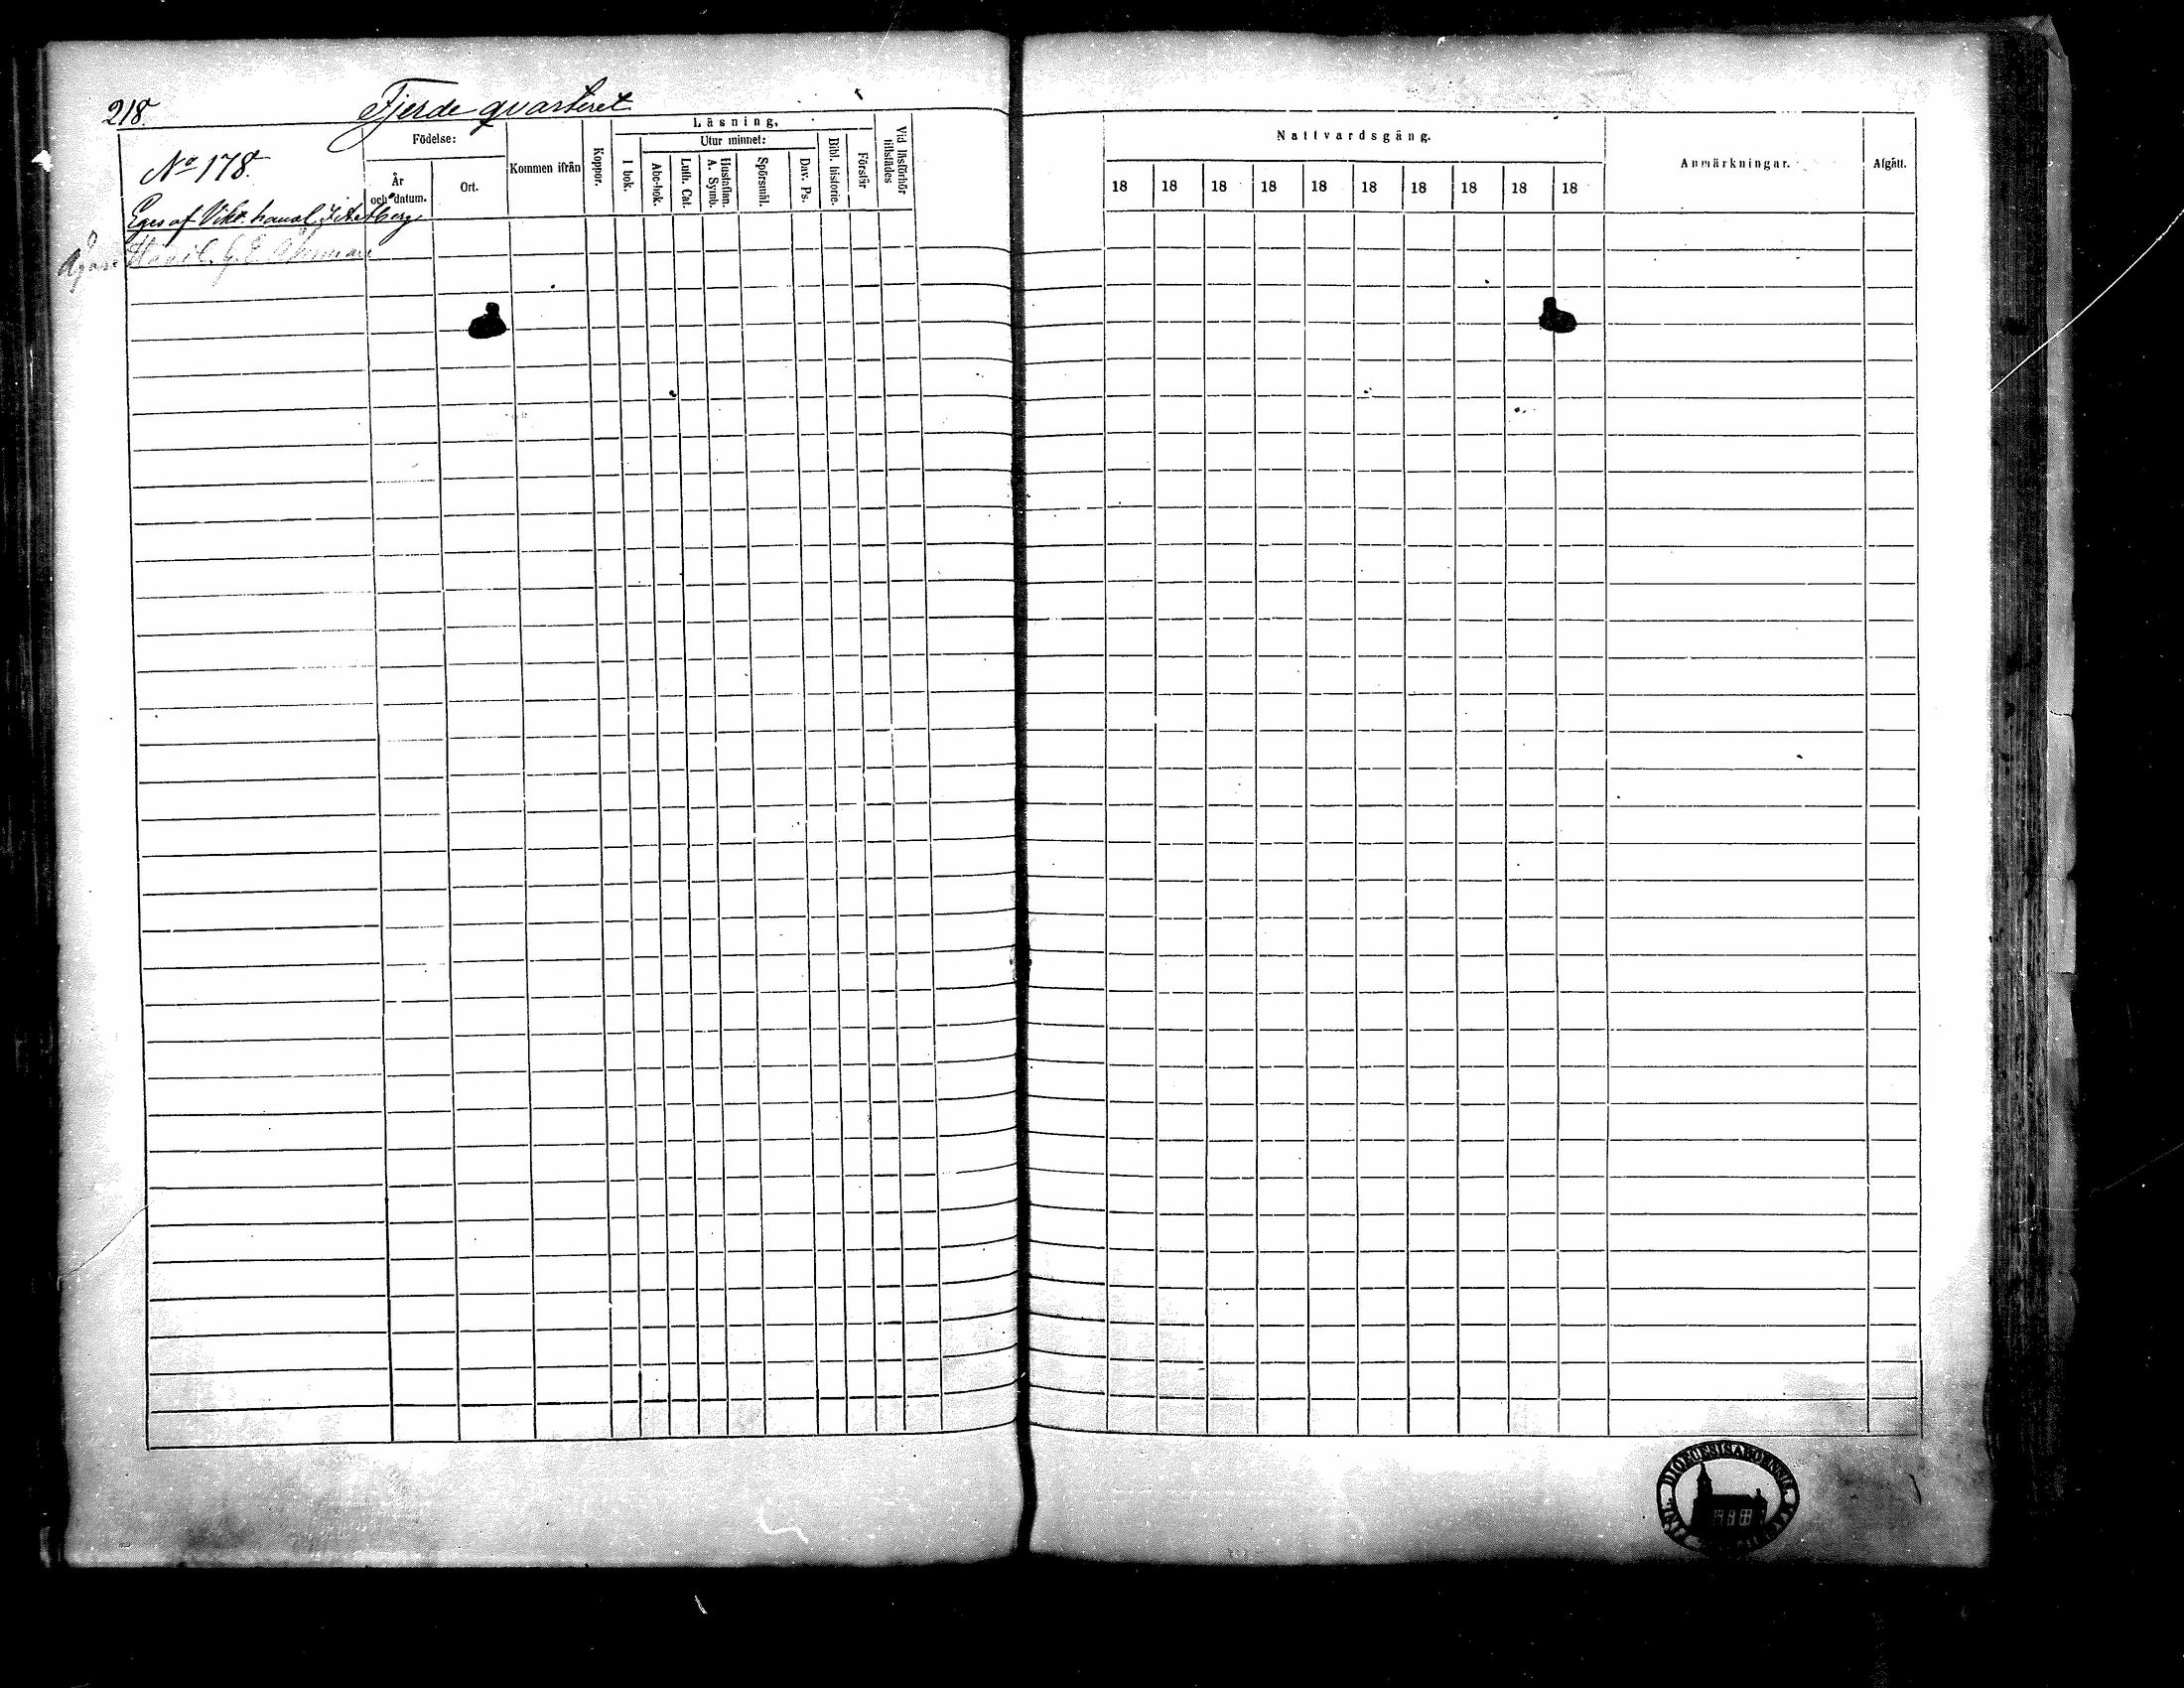 218.
Fjerde qvarteret
No 178.
Eges af Vikt. handl.
Ägare
Födelse:
År och datum.
Ort.
Kommen ifrån
Koppor.
Läsning,
I bok.
Utur minnet:
Abc-bok.
Luth. Cat.
Hustaflan.
A. Symb.
Spörsmål.
Dav. Ps.
Bibl. historie.
Förstår
Vid läsförhör
tillstädes
Nattvardsgång.
18 18 18 18 18 18 18 18 18 18
Anmärkningar.
Afgått.